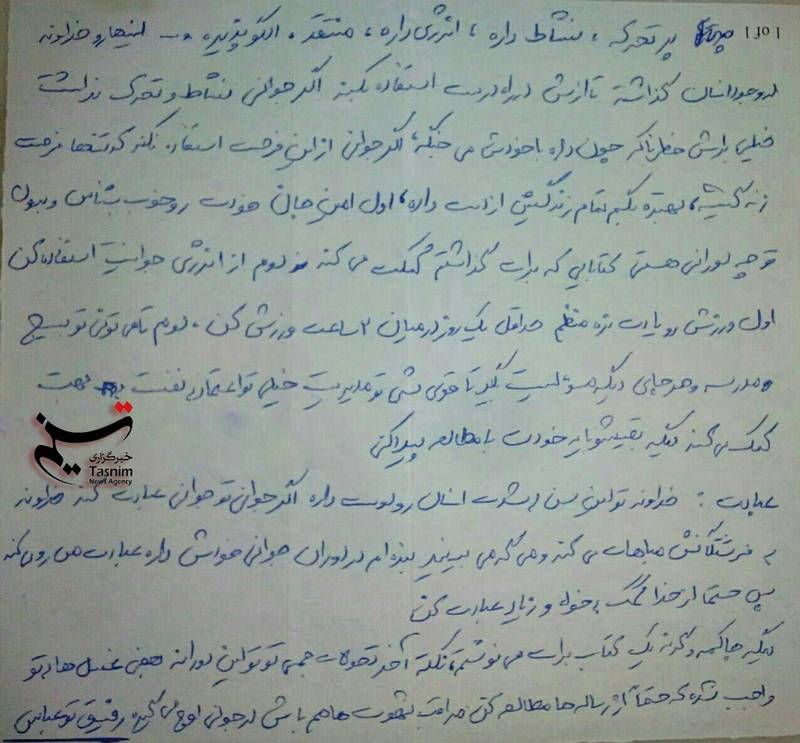 1 of 1
پر تحرکه ، نشاط داره ، انرژی داره ، منتقد ، الگو پذیره ... اینها رو خداوند
در وجود انسان گذاشته تا ازش در راه درست استفاده بکنه اگر جوانی نشاط و تحرک نداشت
خیلی براش خطرناکه چون داره با خودش می جنگه ، اگر جوانی از این فرصت استفاده نکنه که تنها فرصت
زندگیشه ، بهتره بگیم تمام زندگیش از دست داره ، اول امین جان خودت رو خوب بشناس و ببین
تو چه دورانی هستی کتابایی که برات گذاشتم کمکت می کنه دوم از انرژی جوانیت استفاده کن
اول ورزش رو یادت نره منظم حداقل یک روز در میان ۲ ساعت ورزش کن ، دوم تا می تونی تو بسیج
و مدرسه و هر جایی دیگه مسولیت بگیر تا قوی بشی تو مدیریت خیلی تو اعتماد به نفست بهت
کمک می کنه دیگه بقیشو باید خودت با مطالعه پیدا کنی
عبادت : خداوند تو این سن به شدت انسان رو دوست داره اگر جوانی تو جوانی عبادت کند خداوند
به فرشتگانش مباهات می کنه و می گه می بینید بنده ام در دوران جوانی خودش داره عبادت من رو می کنه
پس حتما از خدا کمک بخواه و زیاد عبادت کن
دیگه جا کمه وگرنه یک کتاب برات می نوشتم ، نکته آخر تحولات جسمی تو تو این دورانه بعضی غسل ها به تو
واجب شده که حتما از رساله ها مطالعه کن مراقب شهوت هم باش در جوانی اوج می گیره رفیق تو عباس
تسنیم
خبرگزاری
Tasnim
News Agency